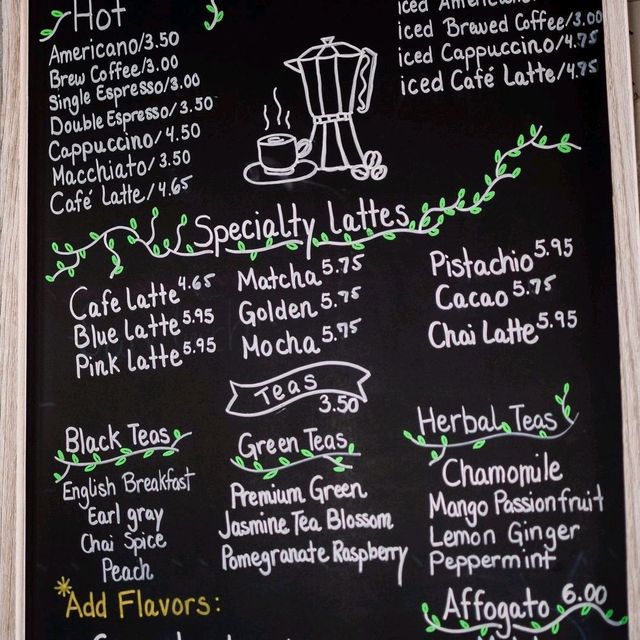 Hot
Americano/3.50
Brew Coffee/3.00
Single Espresso/3.00
Double Espresso/3.50
Cappuccino/4.50
Macchiato/3.50
Café Latte/4.65
iced
iced Brewed Coffee/3.00
iced Cappuccino/4.75
iced Café Latte/4.75
Specialty Lattes
Cafe Latte 4.65
Blue Latte 5.95
Pink Latte 5.95
Matcha 5.75
Golden 5.75
Mocha 5.75
Pistachio 5.95
Cacao 5.75
Chai Latte 5.95
Teas
3.50
Black Teas
English Breakfast
Earl gray
Chai Spice
Peach
Green Teas
Premium Green
Jasmine Tea Blossom
Pomegranate Raspberry
Herbal Teas
Chamomile
Mango Passionfruit
Lemon Ginger
Peppermint
*Add Flavors:
Affogato 6.00